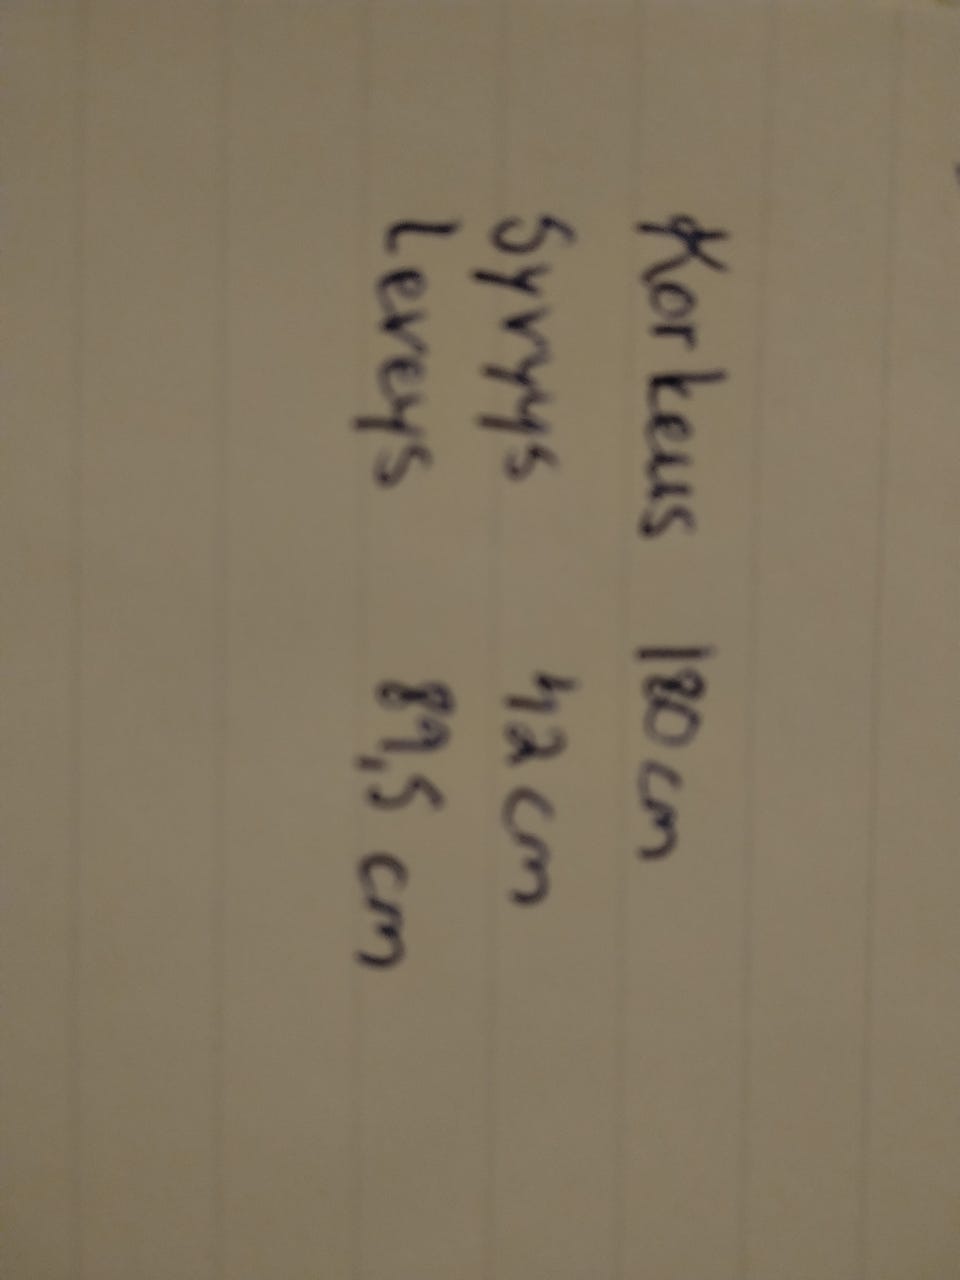 Korkeus 180 cm
Syvyys 42 cm
Leveys 89,5 cm